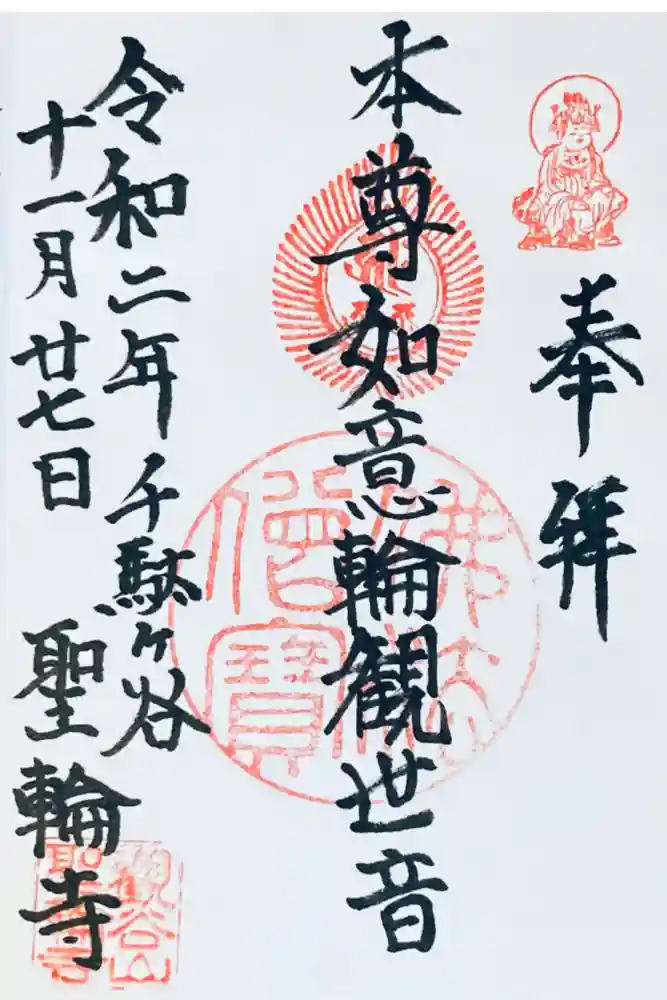 奉拝
本尊如意輪観世音
令和二年
十一月廿七日
千駄ヶ谷
聖輪寺
佛法僧寳
觀谷山
聖輪寺